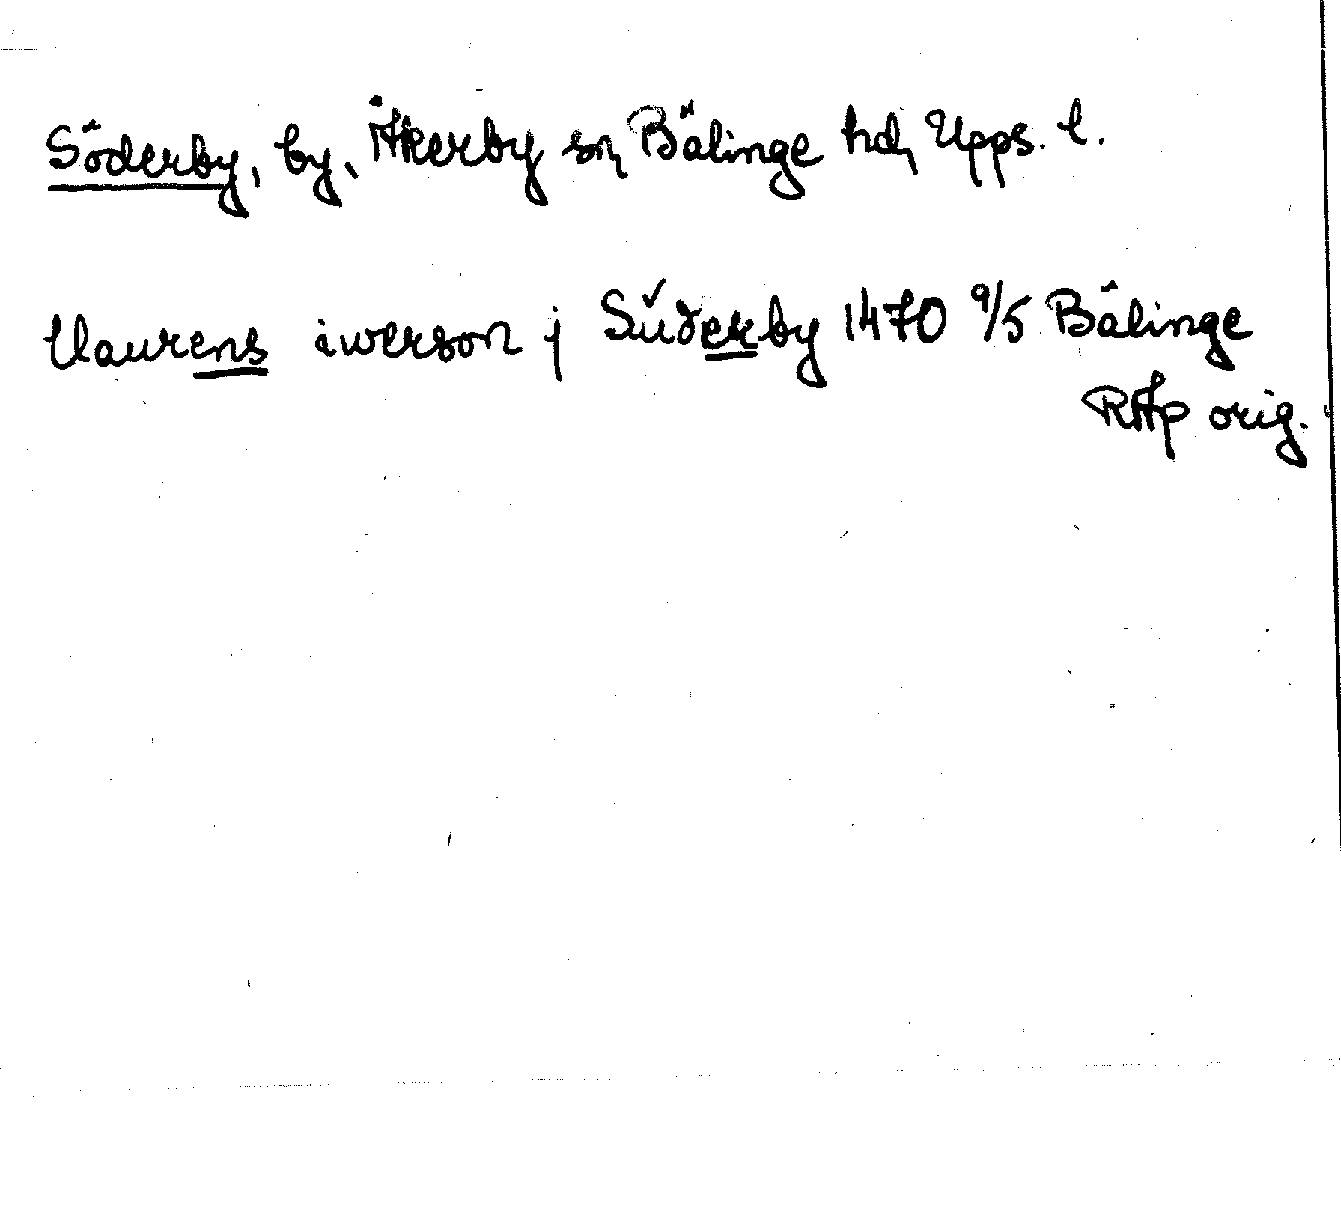 Söderby, by, Åkerby sn, Bälinge hd, Upps. l.
llaurens iwerson j Sůderby 1470 9/5 Bälinge
RAp orig.